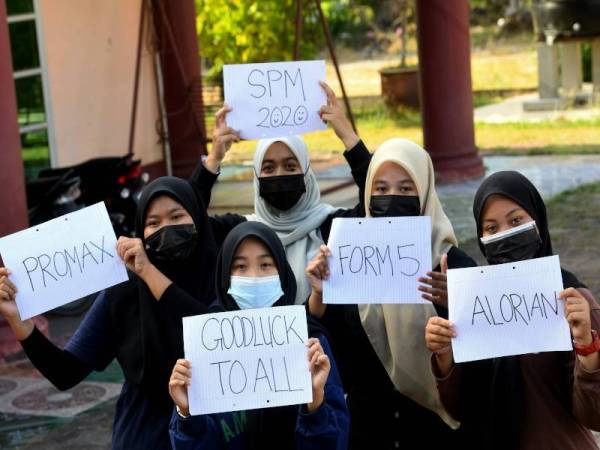 SPM
2020
PROMAX
FORM 5
ALORIAN
GOODLUCK
TO ALL